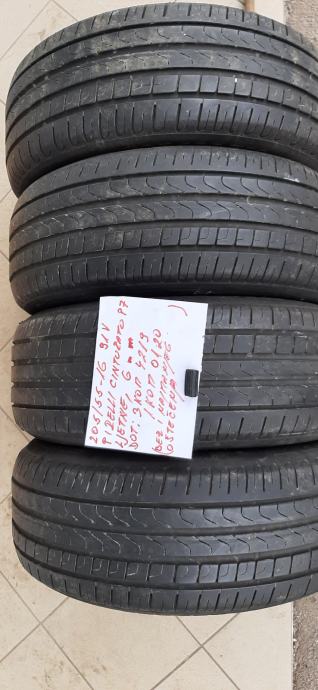 205/55-16 91V
PIRELLI CINTURATO P7
LJETNE, 6 mm
DOT: 3KOM 4219
1KOM 0120
BEZ I NAJMANJEG
OŠTEĆENJA